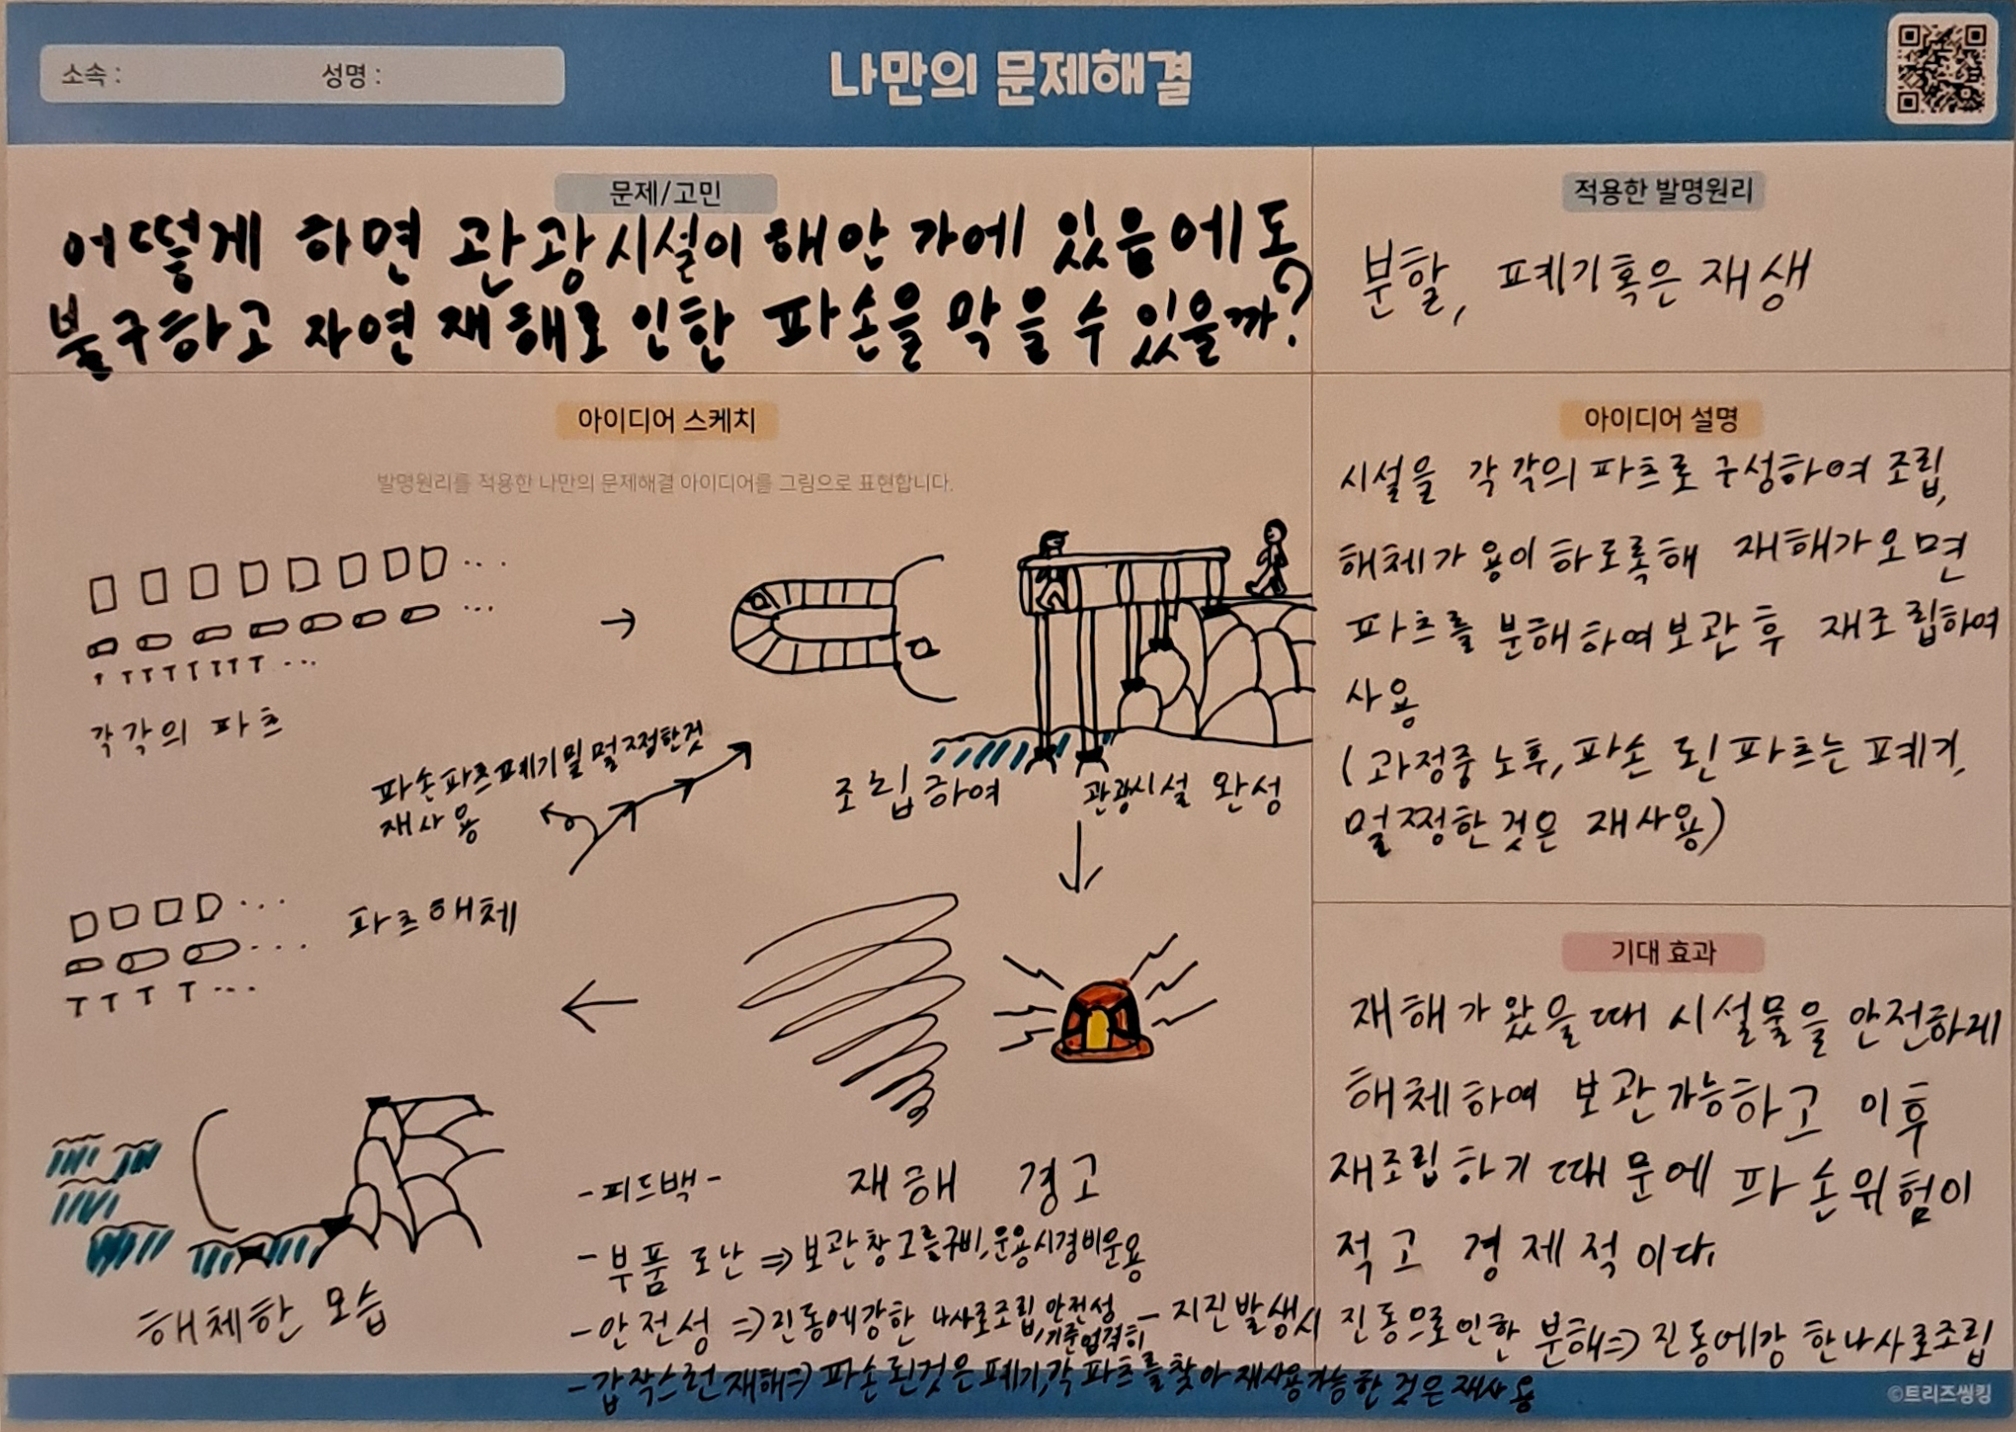 소속 :
성명 :
나만의 문제해결
문제/고민
어떻게 하면 관광시설이 해안가에 있음에도
불구하고 자연재해로 인한 파손을 막을 수 있을까?
적용한 발명원리
분할, 폐기혹은 재생
아이디어 스케치
발명원리를 적용한 나만의 문제해결 아이디어를 그림으로 표현합니다.
각각의 파츠
조립하여 관광시설 완성
파손파츠폐기및 멀쩡한것
재사용
파츠해체
재해 경고
해체한 모습
아이디어 설명
시설을 각각의 파츠로 구성하여 조립,
해체가 용이하도록해 재해가오면
파츠를 분해하여보관후 재조립하여
사용
(과정중 노후, 파손 된 파츠는 폐기,
멀쩡한것은 재사용)
기대 효과
재해가 왔을때 시설물을 안전하게
해체하여 보관가능하고 이후
재조립하기 때문에 파손위험이
적고 경제적이다.
-피드백-
-부품 도난 => 보관창고를구비, 운용시경비운용
-안전성 => 진동에강한 나사로조립, 안전성
기준엄격히
-지진발생시 진동으로인한 분해=> 진동에강한나사로조립
-갑작스런재해=> 파손된것은폐기, 각 파츠를찾아 재사용가능한 것은 재사용
©트리즈씽킹